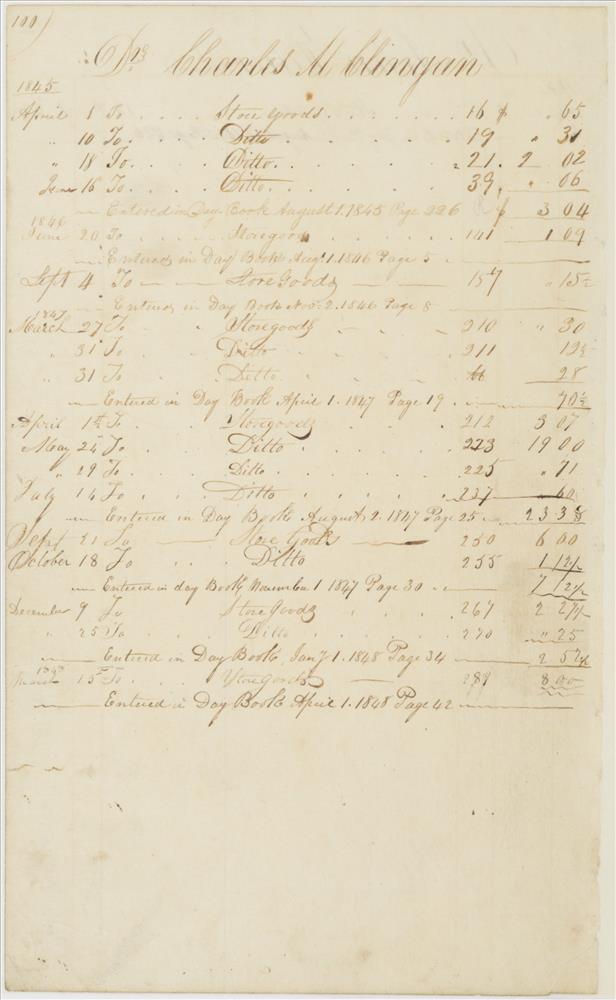 100)
Drs Charles M Clingan
1845
April 1 To . . . . Store goods . . . . . . . 16 $ " 65
" 10 To . . . . Ditto . . . . . . . 19 " 31
" 18 To . . . . Ditto . . . . . . . 21 . 2 02
June 16 To . . . . Ditto . . . . . . . 39 . " 06
Entered in Day Book August 1. 1845 Page 226 $ 3 04
1846
June 20 To . . . Storegoods . . . . . 141 1 09
Entered in Day Book Augt 1. 1846 Page 5
Sept 4 To Store Goods 157 " 15½
Entered in Day Book Nov. 2. 1846 Page 8
1847
March 27 To . . Storegoods . . . 210 " 30
" 31 To . . Ditto . . . 211 12½
" 31 To . . Ditto . . . 28
Entered in Day Book April 1. 1847 Page 19 70½
April 1st To . . Storegoods . . . 212 3 07
May 24 To . . Ditto . . . . . 223 19 00
" 29 To . . Ditto . . . . . 225 " 71
July 14 To . . . Ditto . . . . . 237 60
Entered in Day Book August 2. 1847 Page 25 23 38
Sept 21 To Store Goods 250 6 00
October 18 To . . . Ditto 255 1 12½
Entered in day Book November 1 1847 Page 30 7 12½
December 9 To . . . Store Goods . . . 267 2 27½
" 25 To . . . Ditto . . . . . 270 " 25
Entered in Day Book, Jany 1. 1848 Page 34 2 52½
March 15th To . . . Storegoods 289 8 00
Entered in Day Book April 1. 1848 Page 42